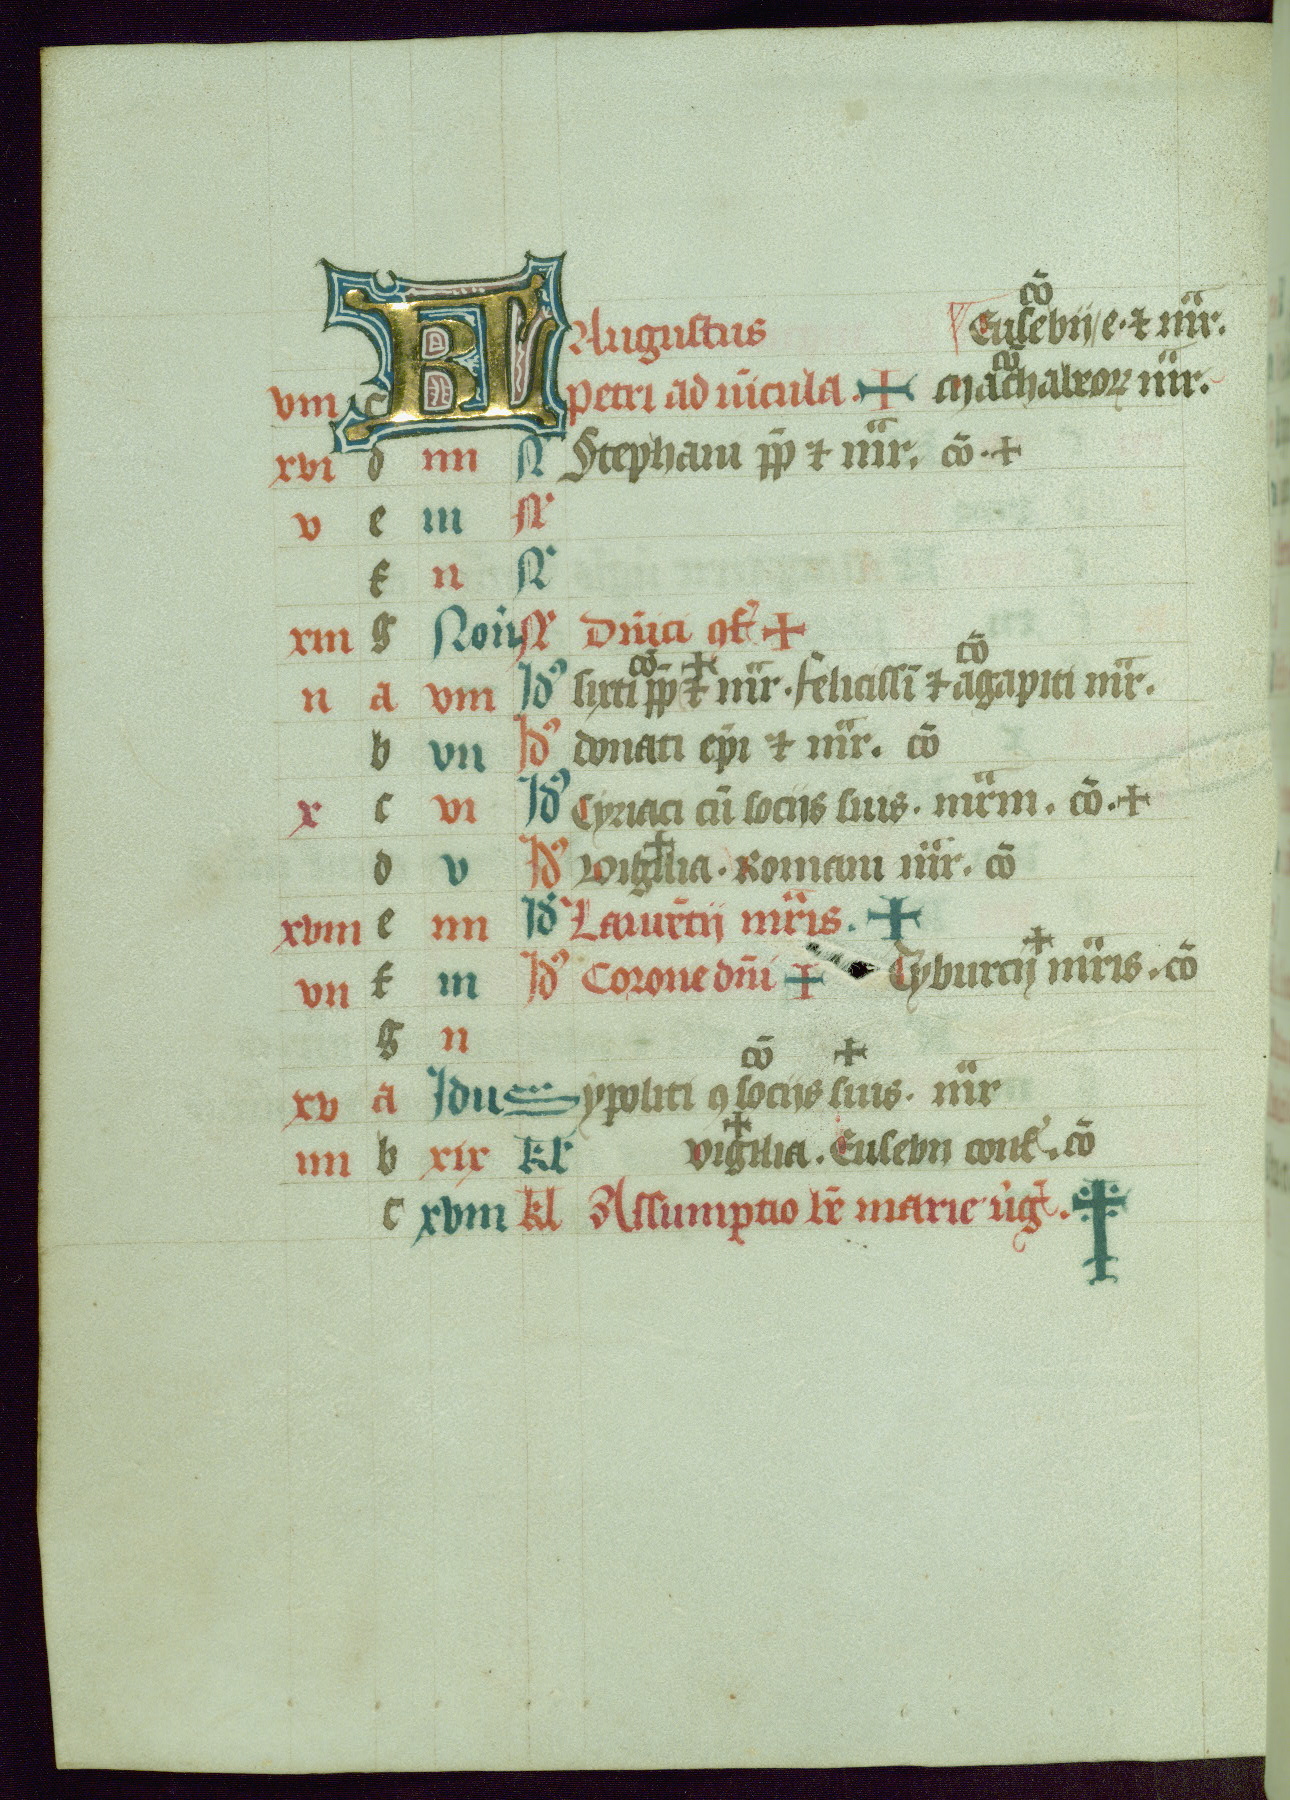 KL Augustus Eusebij e. ⁊ mr̄r. cō
viii c Petri ad vīcula. + Machabeoꝝ mr̄r. cō
xvi d iiii N Stephani pp̄ ⁊ mr̄r. cō. +
v e iii N
f ii N
xiii g Noñ N Dn̄ici ꝯf +
ii a viii Id⁹ Sixti pp̄ ⁊ mr̄r. felicissī ⁊ agapiti mr̄r. cō + cō
b vii Id⁹ donati ep̄i ⁊ mr̄r. cō
x c vi Id⁹ Cyriaci cū socijs suis. mr̄m. cō. +
d v Id⁹ Vigilia. Romani mr̄r. cō +
xviii e iiii Id⁹ Laurētij mr̄is. +
vii f iii Id⁹ Corone dn̄i + Tyburtij mr̄is. cō +
g ii
xv a Idus ypoliti ꝯ socijs suis. mr̄r cō +
iiii b xix kl Vigilia. Eusebii conf. cō +
c xviii kl Assumptio bē marie v̄g. +